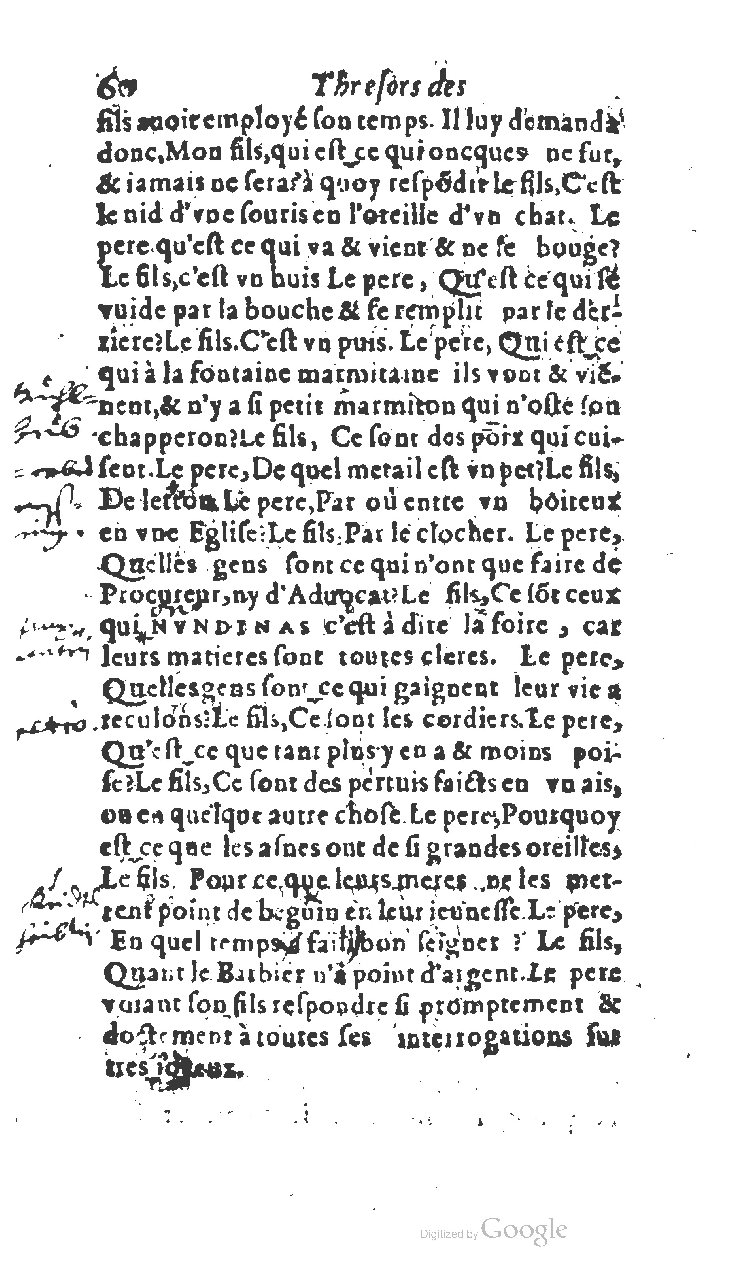 60 Threſors des
fils auoit employé ſon temps. Il luy demanda
donc, Mon fils, qui eſt ce qui oncques ne fut,
& iamais ne ſera? à quoy reſpõdit le fils, C'eſt
le nid d'vne ſouris en l'oreille d'vn chat. Le
pere. qu'eſt ce qui va & vient & ne ſe bouge?
Le fils, c'eſt vn huis Le pere, Qu'eſt ce qui ſe
vuide par la bouche & ſe remplit par le der-
riere? Le fils. C'eſt vn puis. Le pere, Qui eſt ce
qui à la fontaine marmitaine ils vont & viẽ-
nent, & n'y a ſi petit marmiton qui n'oſte ſon
chapperon? Le fils, Ce ſont des poix qui cui-
ſent. Le pere, De quel metail eſt vn pet? Le fils,
De Le pere, Par où entre vn boiteux
en vne Egliſe? Le fils, Par le clocher. Le pere,
Quelles gens ſont ce qui n'ont que faire de
Procureur, ny d'Aduocat? Le fils, Ce ſõt ceux
qui NVNDINAS c'eſt à dire la foire, car
leurs matieres ſont toutes cleres. Le pere,
Quelles gens ſont ce qui gaignent leur vie a
reculons? Le fils, Ce ſont les cordiers. Le pere,
Qu'eſt ce que tant plus y en a & moins poi-
ſe? Le fils, Ce ſont des pertuis faicts en vn ais,
ou en quelque autre choſe. Le pere, Pourquoy
eſt ce que les aſnes ont de ſi grandes oreilles,
Le fils. Pour ce que leurs meres ne les met-
tent point de beguin en leur ieuneſſe. Le pere,
En quel temps fait bon ſeigner? Le fils,
Quant le Barbier n'a point d'argent. Le pere
voiant ſon fils reſpondre ſi promptement &
doctement à toutes ſes interrogations fut
tres ioyeux.
Digitized by Google